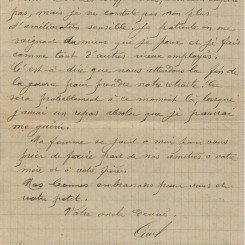 pas, mais je ne constate pas non plus
d'amélioration sensible. Je patiente en me
soignant du mieux que je peux et je fais
comme tant d'autres vieux employés.
C'est à dire que nous attendons la fin de
la guerre pour prendre notre retraite. Ce
sera probablement à ce moment là, lorsque
j'aurai un repos absolu que je pourrai
me guérir.
Ma femme se joint à moi pour vous
prier de faire part de nos amitiés à votre
mère et à votre frère.
Nos bonnes embrassades pour vous et
votre petit.
Votre oncle dévoué.